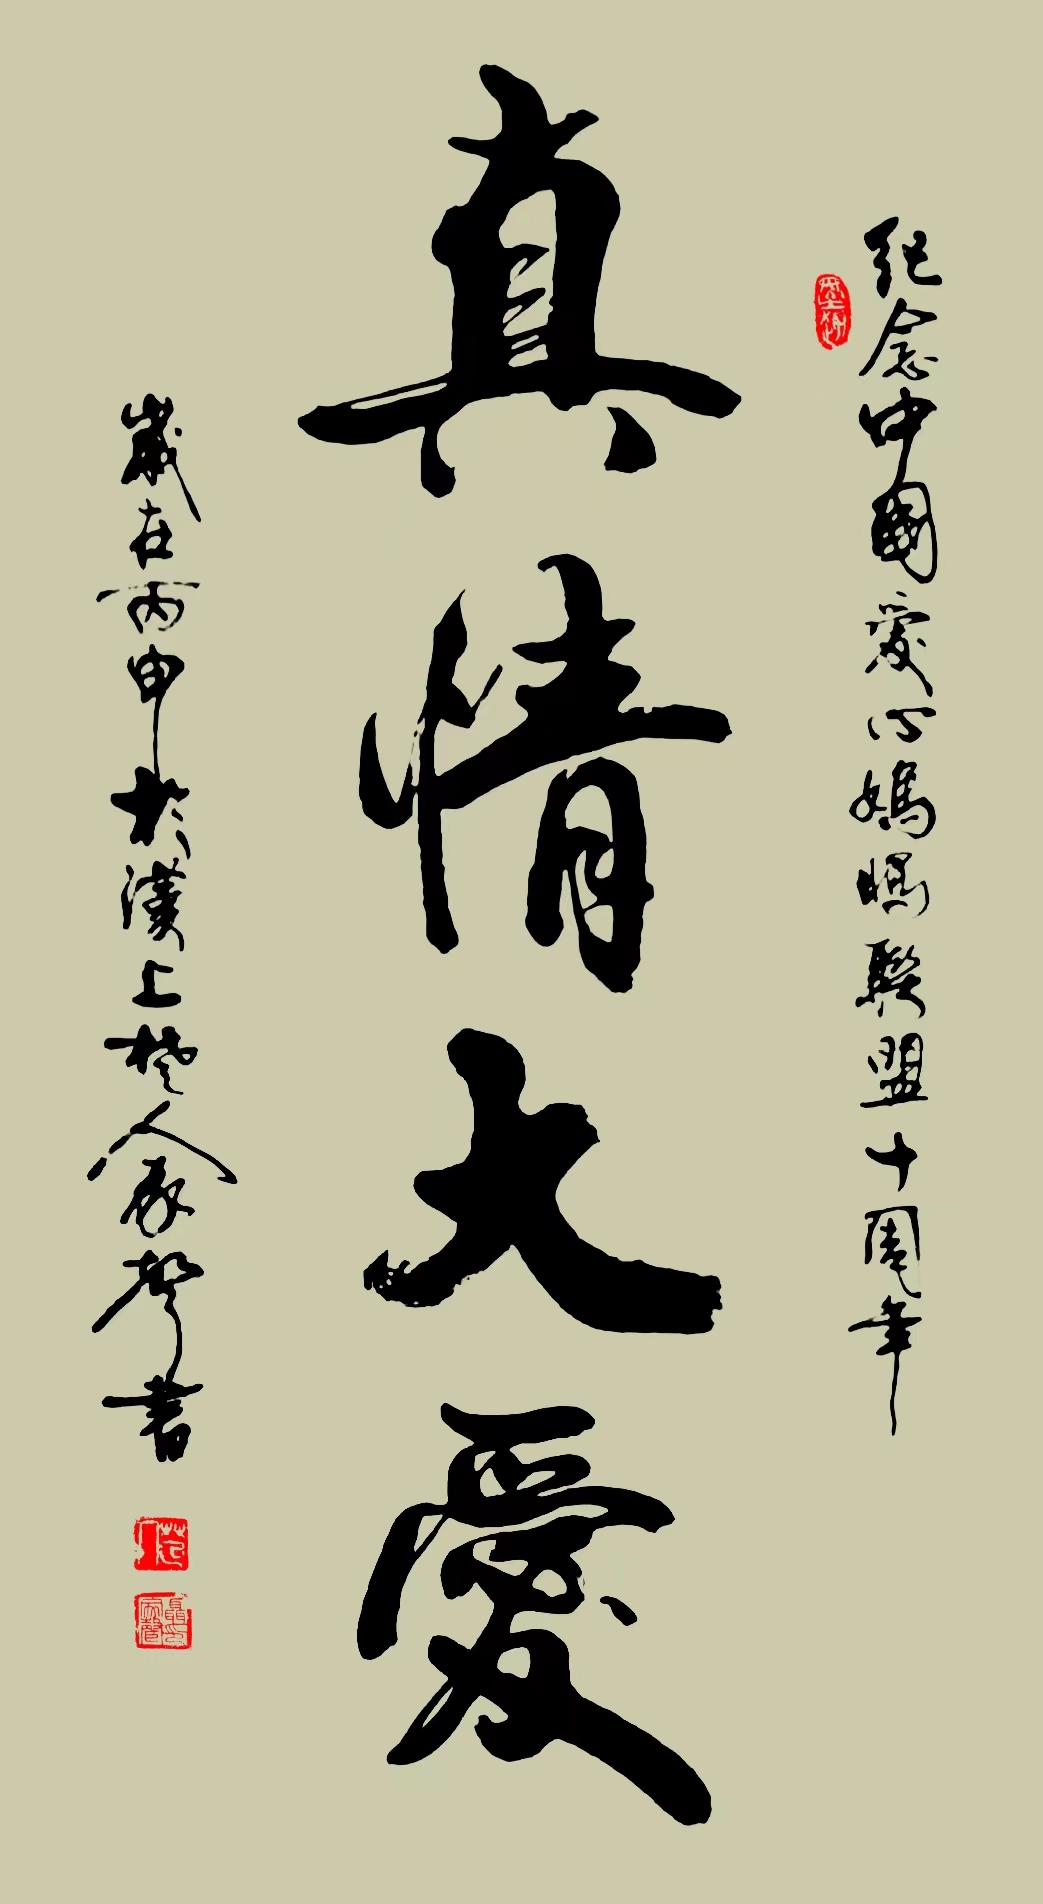 紀念中國愛心媽媽聯盟十周年
真情大愛
歲在丙申於漢上楚人家聲書